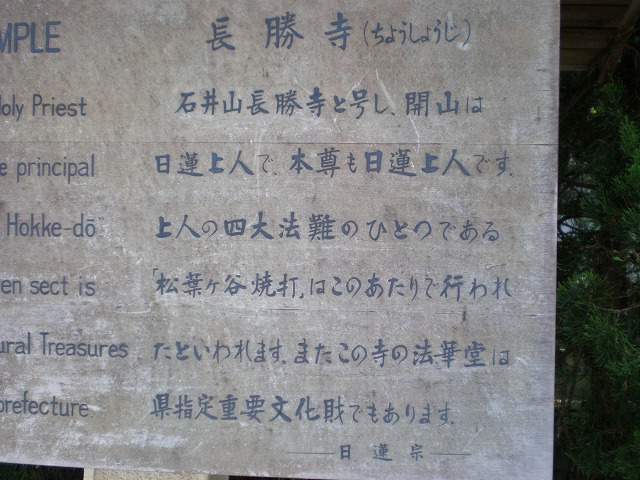 MPLE
oly Priest
e principal
Hokke-dō
en sect is
ural Treasures
prefecture
長勝寺(ちょうしょうじ)
石井山長勝寺と号し、開山は
日蓮上人で、本尊も日蓮上人です。
上人の四大法難のひとつである
「松葉ヶ谷焼打」はこのあたりで行われ
たといわれます。またこの寺の法華堂は
県指定重要文化財でもあります。
日蓮宗